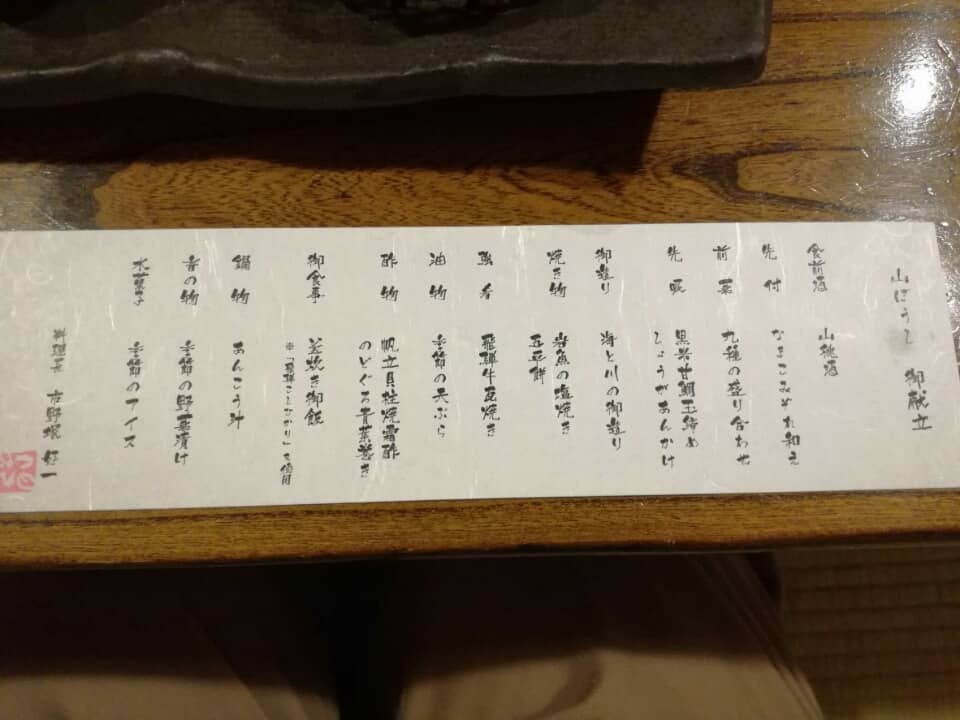 山ぼうし 御献立
食前酒 山桃酒
先付 なまこみぞれ和え
前菜 九種の盛り合わせ
先暖 黒岩甘鯛玉締め
しょうがあんかけ
御造り 海と川の御造り
焼き物 岩魚の塩焼き
五平餅
強肴 飛騨牛瓦焼き
油物 季節の天ぷら
酢物 帆立貝柱焼霜酢
のどぐろ青葉巻き
御食事 釜炊き御飯
※「飛騨こしひかり」を使用
鍋物 あんこう汁
香の物 季節の野菜漬け
水菓子 季節のアイス
料理長